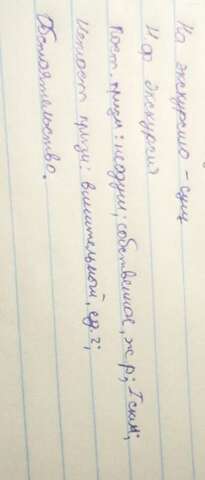 На экскурсию - сущ
Н.ф. экскурсия
Пост. призн: неодуш; собственное, ж р; I скл;
Непост призн: винительный, ед. ч;
Обстоятельство.